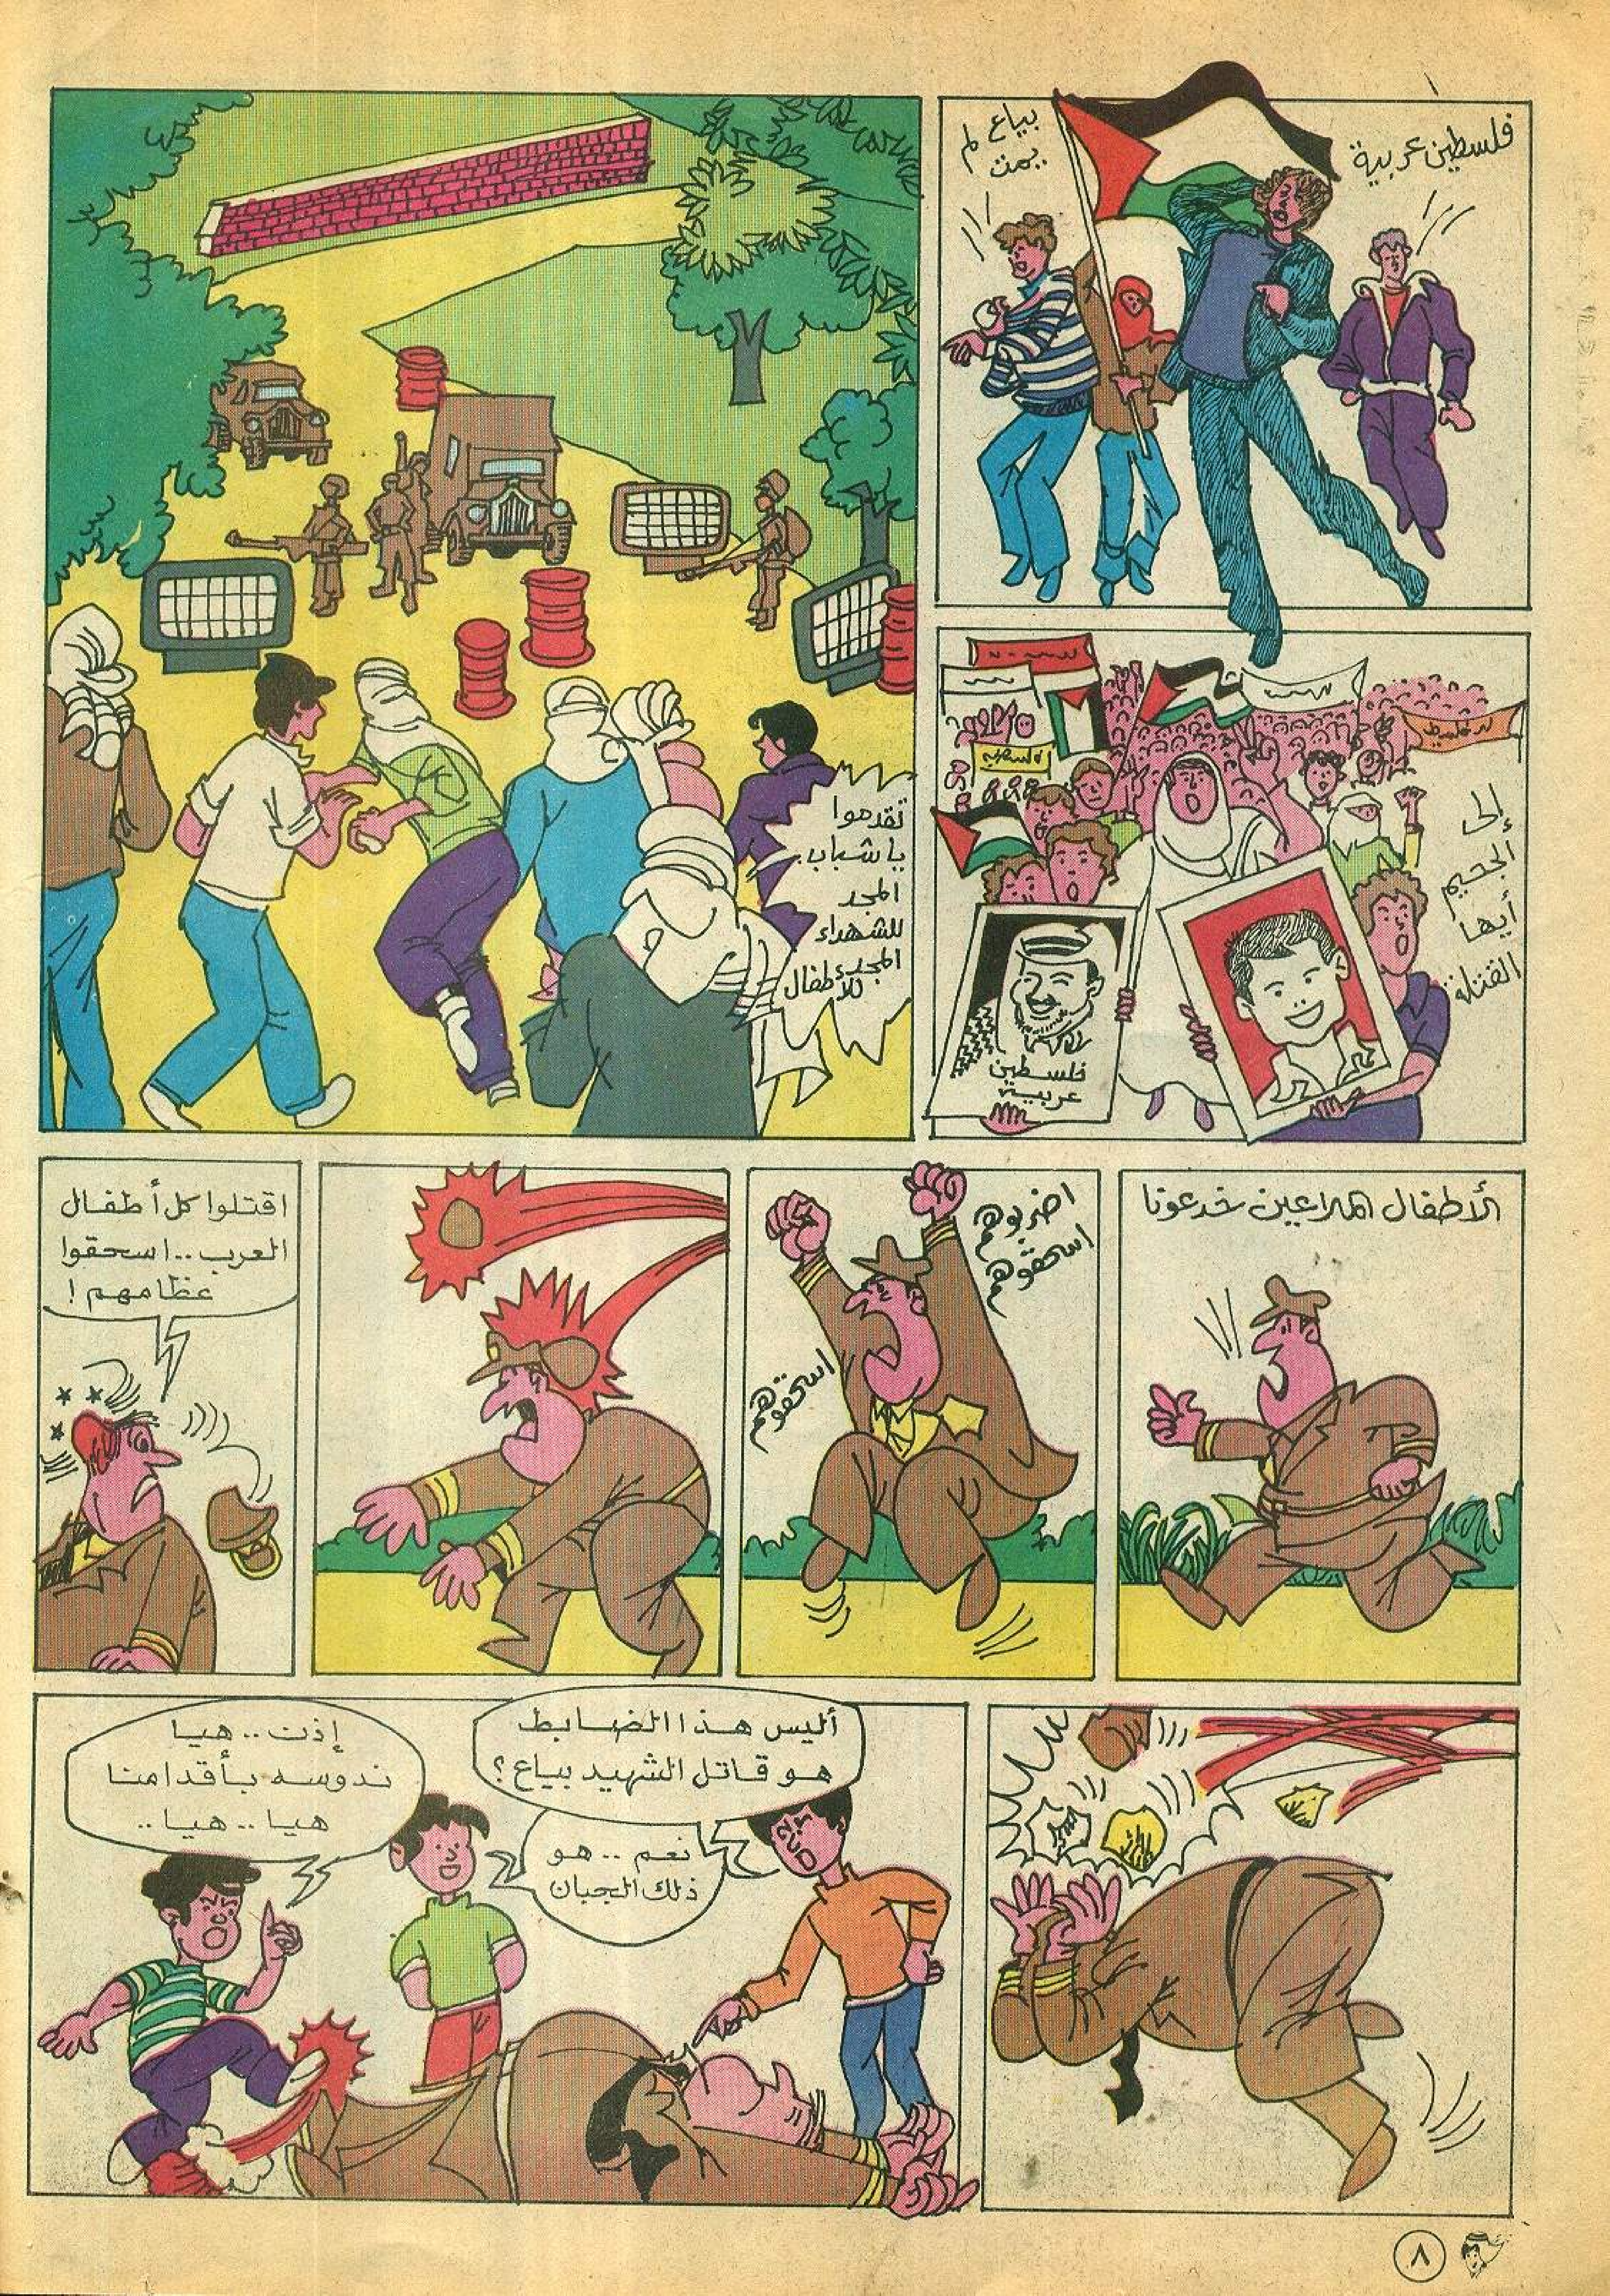 فلسطين عربية
بياع لم
يمت
إلى
الجحيم
أيها
القتلة
فلسطين
عربية
تقدموا
يا شباب..
المجد
للشهداء
المجد
للأطفال
الأطفال الملاعين خدعونا
اضربوهم
اسحقوهم
اسحقوهم
اقتلوا كل أطفال
العرب.. اسحقوا
عظامهم!
أليس هذا الضابط
هو قاتل الشهيد بياع؟
نعم.. هو
ذلك الجبان
إذن.. هيا
ندوسه بأقدامنا
هيا.. هيا..
٨